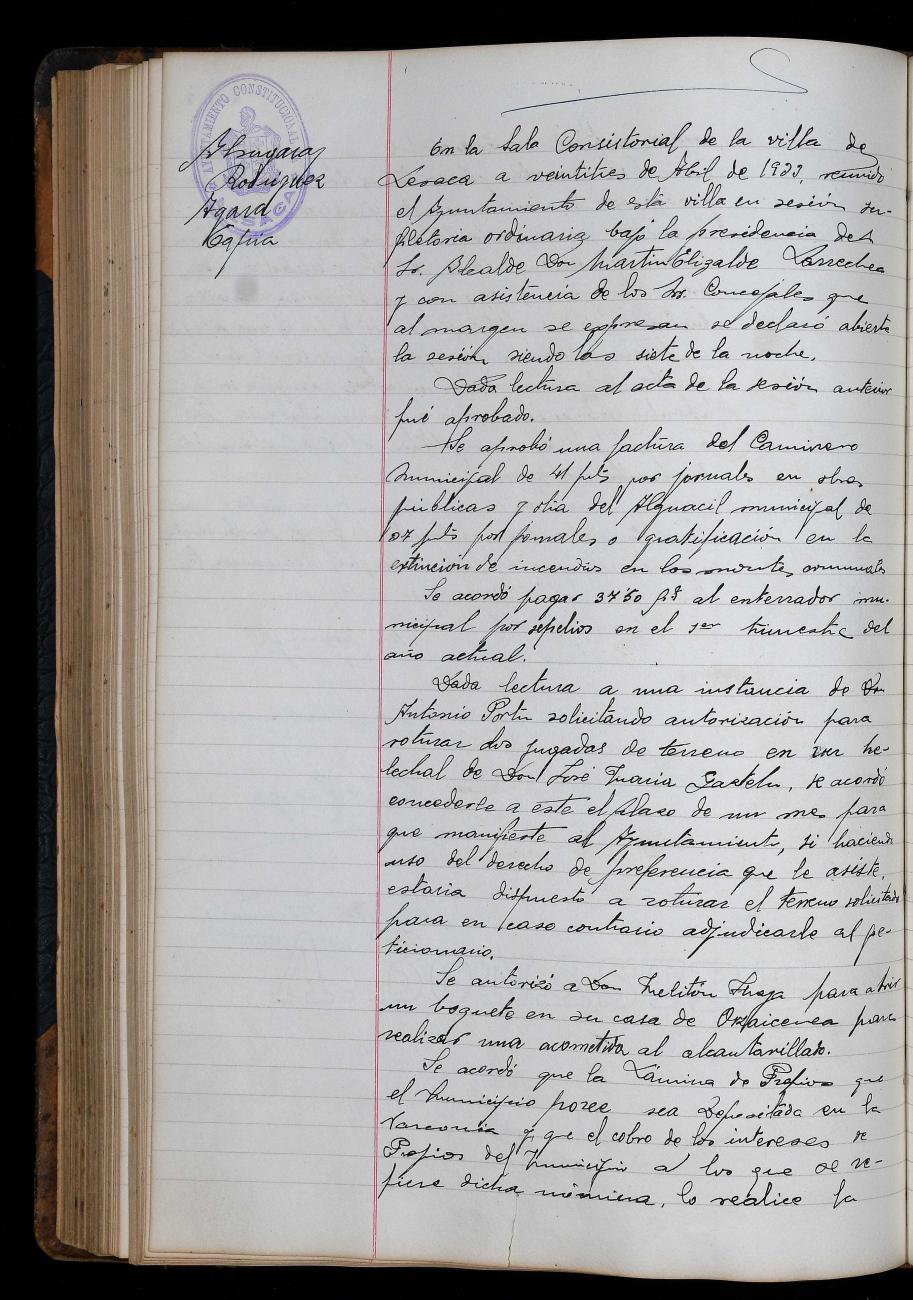 AYUNTAMIENTO CONSTITUCIONAL
LESACA
Rodriguez
Igard
Tapia
En la Sala Consistorial de la villa de
Lesaca a veintitres de Abril de 1933, reunido
el Ayuntamiento de esta villa en sesión su-
pletoria ordinaria bajo la presidencia del
Sr. Alcalde Don Martin Elizalde Larrechea
y con asistencia de los Srs. Concejales que
al margen se expresan se declaró abierta
la sesión siendo las siete de la noche.
Dada lectura al acta de la sesión anterior
fué aprobado.
Se aprobó una factura del Caminero
Municipal de 41 pts por jornales en obras
públicas y otra del Alguacil municipal de
07 pts por jornales o gratificación en la
extinción de incendios en los montes comunales
Se acordó pagar 37'50 pts al enterrador mu-
nicipal por sepelios en el 1er trimestre del
año actual.
Dada lectura a una instancia de Don
Antonio Portu solicitando autorización para
roturar dos jugadas de terreno en un he-
lechal de Don José Maria Gastelu, se acordó
concederle a este el plazo de un mes para
que manifieste al Ayuntamiento, si haciendo
uso del derecho de preferencia que le asiste,
estaria dispuesto a roturar el terreno solicitado
para en caso contrario adjudicarle al pe-
ticionario.
Se autorizó a Don Melitón para abrir
un boquete en su casa de para
realizar una acometida al alcantarillado.
Se acordó que la Lámina de Propios que
el Municipio posee sea Depositada en la
y que el cobro de los intereses de
Propios del Municipio a los que se re-
fiere dicha nómina, lo realice la